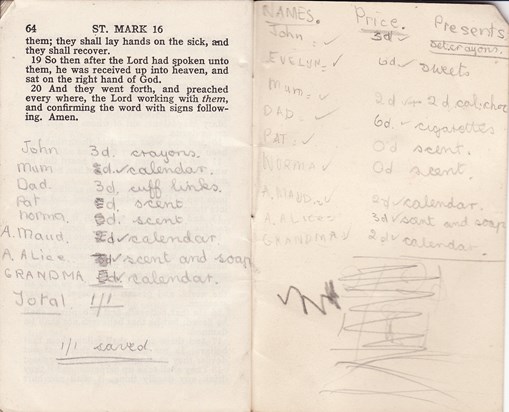 64 ST. MARK 16
them; they shall lay hands on the sick, and
they shall recover.
19 So then after the Lord had spoken unto
them, he was received up into heaven, and
sat on the right hand of God.
20 And they went forth, and preached
every where, the Lord working with them,
and confirming the word with signs follow-
ing. Amen.
John 3d. crayons.
Mum d.✓ calendar.
Dad. 3d. cuff links.
Pat d. scent
Norma. d. scent
A. Maud. d✓ calendar.
A. Alice. d✓ scent and soap
GRANDMA d. calendar.
Total 1/1
1/1 saved.
NAMES. Price. Presents
John. ✓ 3d ✓ crayons.
EVELYN. ✓ 6d ✓ sweets
Mum. ✓ 2d 2d
DAD. ✓ 6d ✓ cigarettes
PAT. ✓ 0d scent.
NORMA ✓ 0d scent.
A. MAUD. ✓ 2d ✓ calendar.
A. ALICE. ✓ 3d ✓ scent and soap
GRANDMA ✓ 2d ✓ calendar.